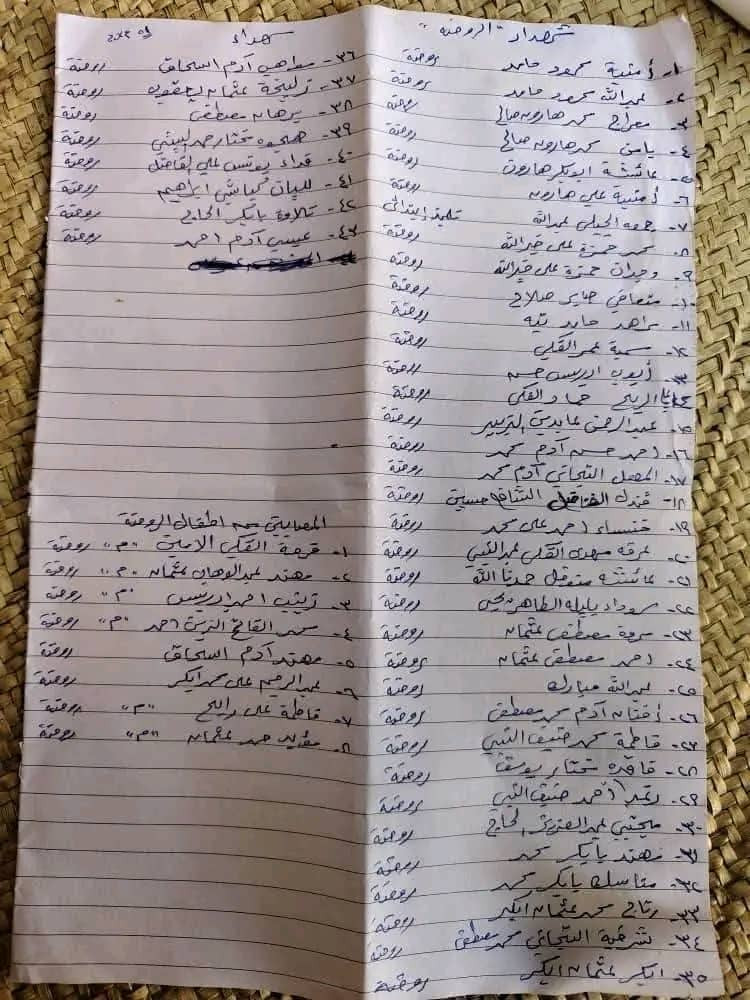 شهداء "الروضة"
١- أمنية محمود حامد روضة
٢- عبدالله محمود حامد روضة
٣- معراج محمد هارون صالح روضة
٤- يامن محمد هارون صالح روضة
٥- عائشة ابوبكر هارون روضة
٦- أمنية على هارون روضة
٧- جمعه الجيلي عبدالله تلميذ إبتدائى
٨- محمد حمزة على خيرالله روضة
٩- وجدان حمزة على خيرالله روضة
١٠- متعافي صابر صلاح روضة
١١- زاهد حامد تيه روضة
١٢- سمية عمر الفكي روضة
١٣- أيوب ادريس حسن روضة
الربح حماد الفكى روضة
١٥- عبدالرحمن عابدين روضة
١٦- احمد حسن آدم محمد روضة
١٧- التجاني آدم محمد روضة
١٨- الشافع حسين روضة
١٩- خنساء احمد على محمد روضة
٢٠- عرفه مهدى الفكى عبدالنبي روضة
٢١- عائشة متوكل روضة
٢٢- الطاهر يحي روضة
٢٣- مروة مصطفى عثمان روضة
٢٤- احمد مصطفى عثمان روضة
٢٥- عبدالله مبارك روضة
٢٦- أفنان آدم محمد مصطفى روضة
٢٧- فاطمة محمد ضيف النبي روضة
٢٨- مختار يوسف روضة
٢٩- رغد أحمد ضيف النبي روضة
٣٠- مجتبي عبدالعزيز الحاج روضة
٣١- مهند بابكر محمد روضة
٣٢- مناسك بابكر محمد روضة
٣٣- رتاج محمد عثمان ابكر روضة
٣٤- شرفية التجاني محمد مصطفى روضة
٣٥- ابكر عثمان ابكر روضة
شهداء
٣٦- مواهب آدم اسحاق روضة
٣٧- زليخة عثمان يعقوب روضة
٣٨- برهان مصطفى روضة
٣٩- مختار حمد النبي روضة
٤٠- فداء يونس علي الفاضل روضة
٤١- كباشي ابراهيم روضة
٤٢- تلاوة بابكر الحاج روضة
٤٣- عيسى آدم احمد روضة
المصابين من اطفال الروضة
١- فرحة الفكى الامين "م" روضة
٢- مهند عبدالوهاب عثمان "م" روضة
٣- زينب احمد ادريس "م" روضة
٤- محمد الفاتح الزين احمد "م" روضة
٥- مهند آدم اسحاق روضة
٦- عبدالرحيم على محمد ابكر روضة
٧- فاطمة على رابح "م" روضة
٨- مؤيد حمد عثمان "م" روضة